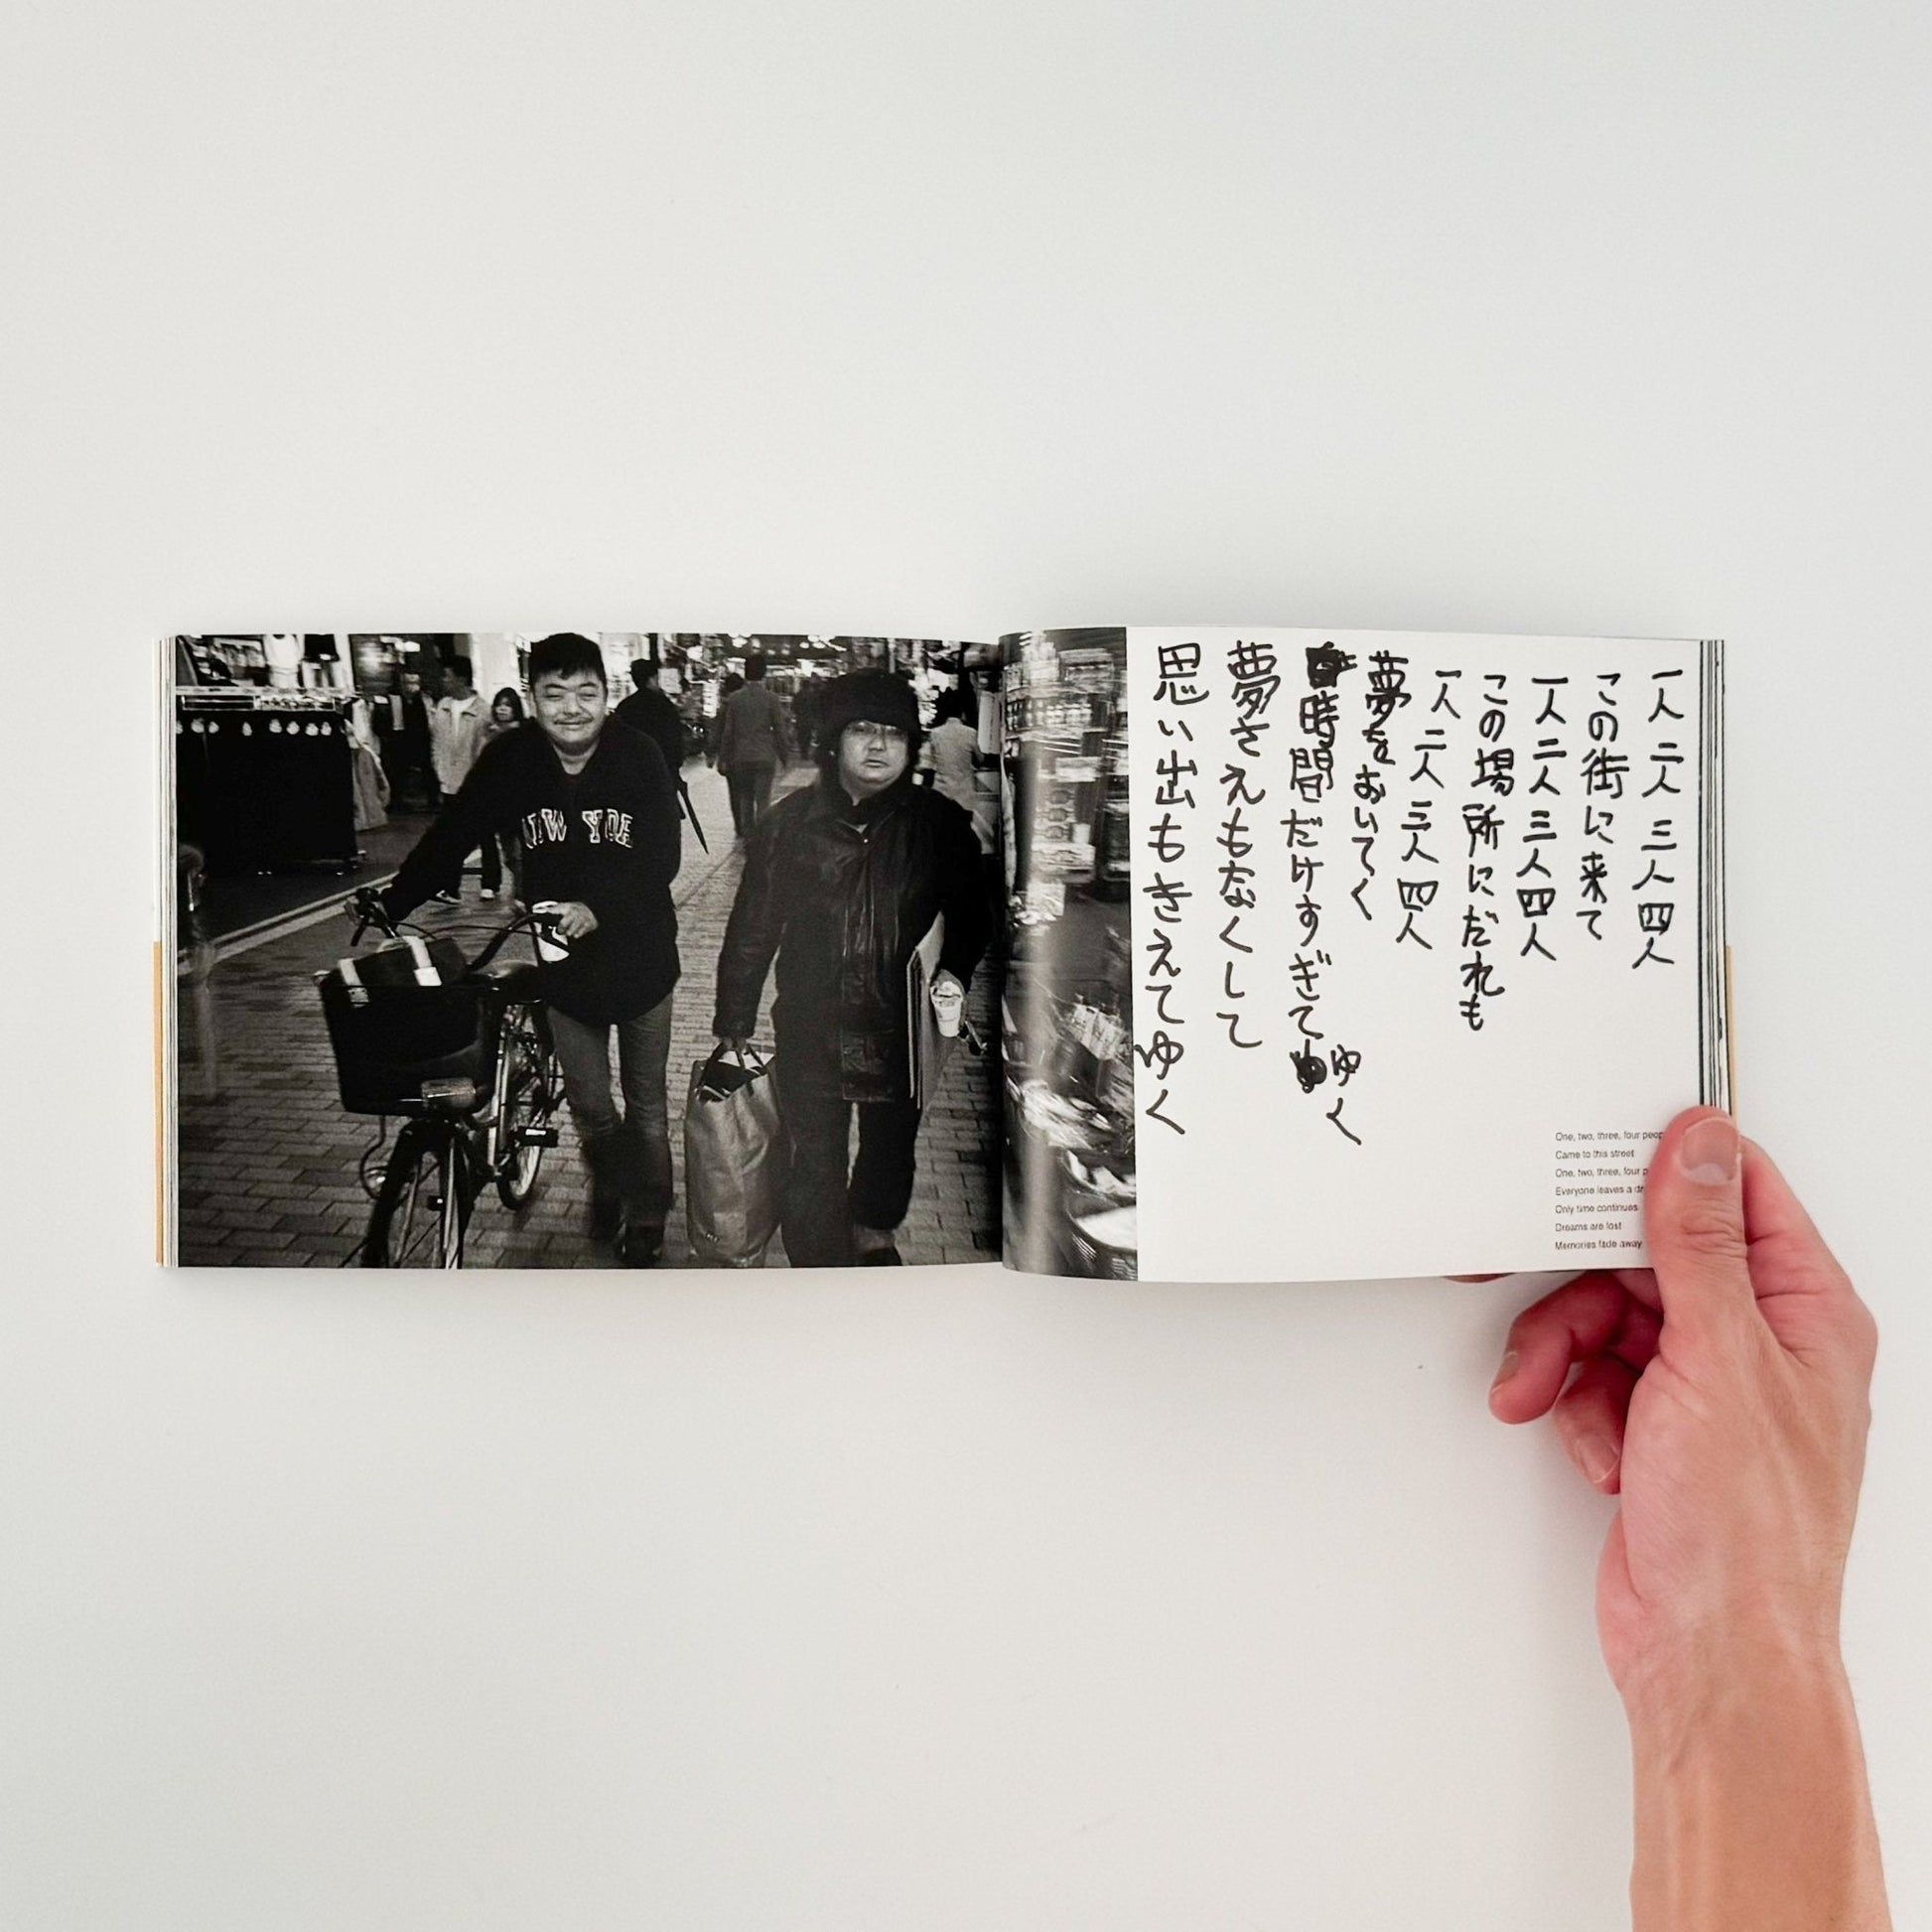 一人二人三人四人
この街に来て
一人二人三人四人
この場所にだれも
一人二人三人四人
夢をおいてく
時間だけすぎてゆく
夢さえもなくして
思い出もきえてゆく
One, two, three, four
Came to this street
One, two, three, four
Everyone leaves a
Only time continues
Dreams are lost
Memories fade away
NEW